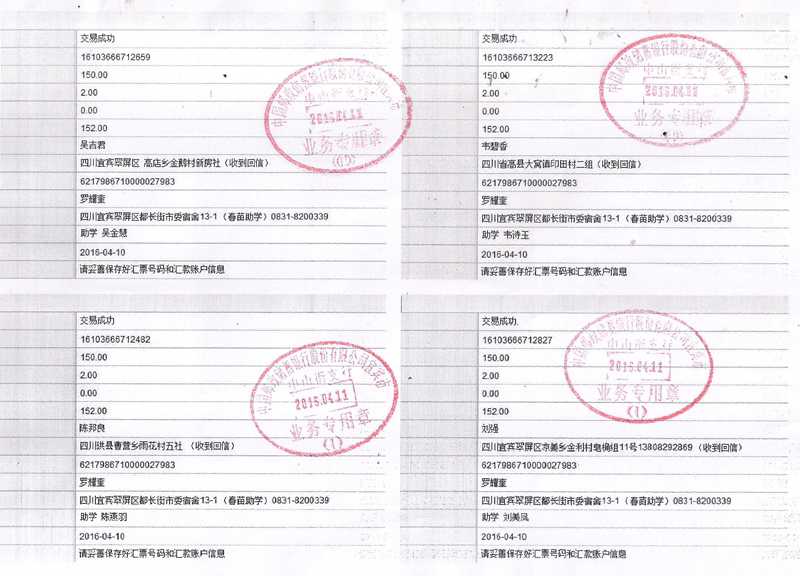 交易成功
16103666712659
150.00
2.00
0.00
152.00
吴吉君
四川宜宾翠屏区 高店乡金鹅村新房社（收到回信）
6217986710000027983
罗耀奎
四川宜宾翠屏区都长街市委宿舍13-1（春苗助学）0831-8200339
助学 吴金慧
2016-04-10
请妥善保存好汇票号码和汇款账户信息
中山街支行
2016.04.11
业务专用章
交易成功
16103666713223
150.00
2.00
0.00
152.00
韦碧香
四川省高县大窝镇印田村二组（收到回信）
6217986710000027983
罗耀奎
四川宜宾翠屏区都长街市委宿舍13-1（春苗助学）0831-8200339
助学 韦诗玉
2016-04-10
请妥善保存好汇票号码和汇款账户信息
中山街支行
2016.04.11
业务专用章
交易成功
16103666712482
150.00
2.00
0.00
152.00
陈邦良
四川珙县曹营乡雨花村五社 （收到回信）
6217986710000027983
罗耀奎
四川宜宾翠屏区都长街市委宿舍13-1（春苗助学）0831-8200339
助学 陈燕羽
2016-04-10
请妥善保存好汇票号码和汇款账户信息
中国邮政储蓄银行股份有限公司宜宾市
中山街支行
2016.04.11
业务专用章
(1)
交易成功
16103666712827
150.00
2.00
0.00
152.00
刘强
四川宜宾翠屏区宗美乡金利村皂桷组11号13808292869（收到回信）
6217986710000027983
罗耀奎
四川宜宾翠屏区都长街市委宿舍13-1（春苗助学）0831-8200339
助学 刘美凤
2016-04-10
请妥善保存好汇票号码和汇款账户信息
中国邮政储蓄银行股份有限公司宜宾市
中山街支行
2016.04.11
业务专用章
(1)